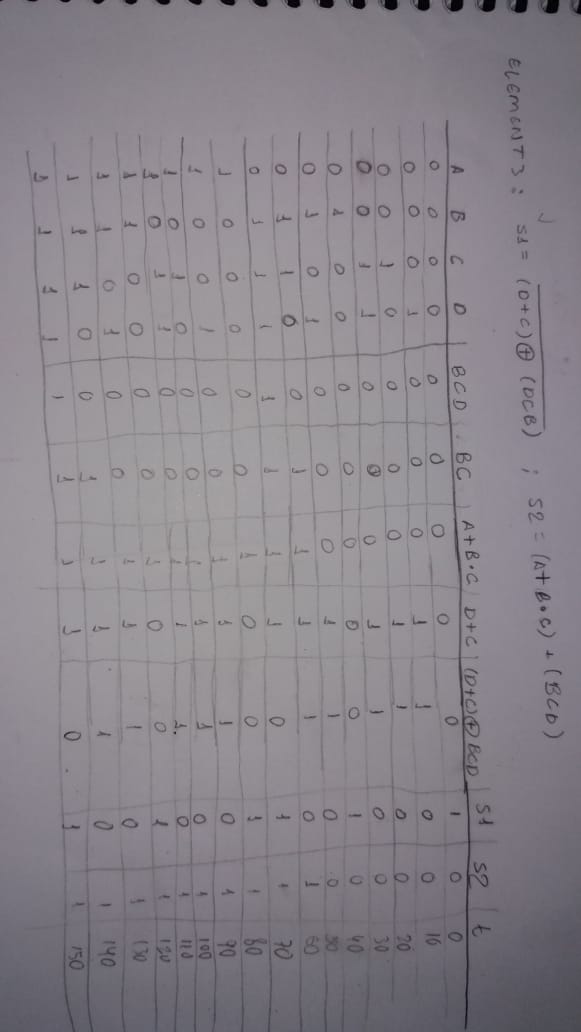 ELEMENT 3: S1 = (D+C)⊕(DCB) ; S2 = (A+B•C)+(BCD)
A B C D | BCD | BC | A+B•C | D+C | (D+C)⊕BCD | S1 | S2 | t
0 0 0 0 0 0 0 0 0 1 0 0
0 0 0 1 0 0 0 1 1 0 0 10
0 0 1 0 0 0 0 1 1 0 0 20
0 0 1 1 0 0 0 1 1 0 0 30
0 1 0 0 0 0 0 0 0 1 0 40
0 1 0 1 0 0 0 1 1 0 0 50
0 1 1 0 0 1 1 1 1 0 1 60
0 1 1 1 1 1 1 1 0 1 1 70
1 0 0 0 0 0 1 0 0 1 1 80
1 0 0 1 0 0 1 1 1 0 1 90
1 0 1 0 0 0 1 1 1 0 1 100
1 0 1 1 0 0 1 1 1 0 1 110
1 1 0 0 0 0 1 0 0 1 1 120
1 1 0 1 0 0 1 1 1 0 1 130
1 1 1 0 0 1 1 1 1 0 1 140
1 1 1 1 1 1 1 1 0 1 1 150